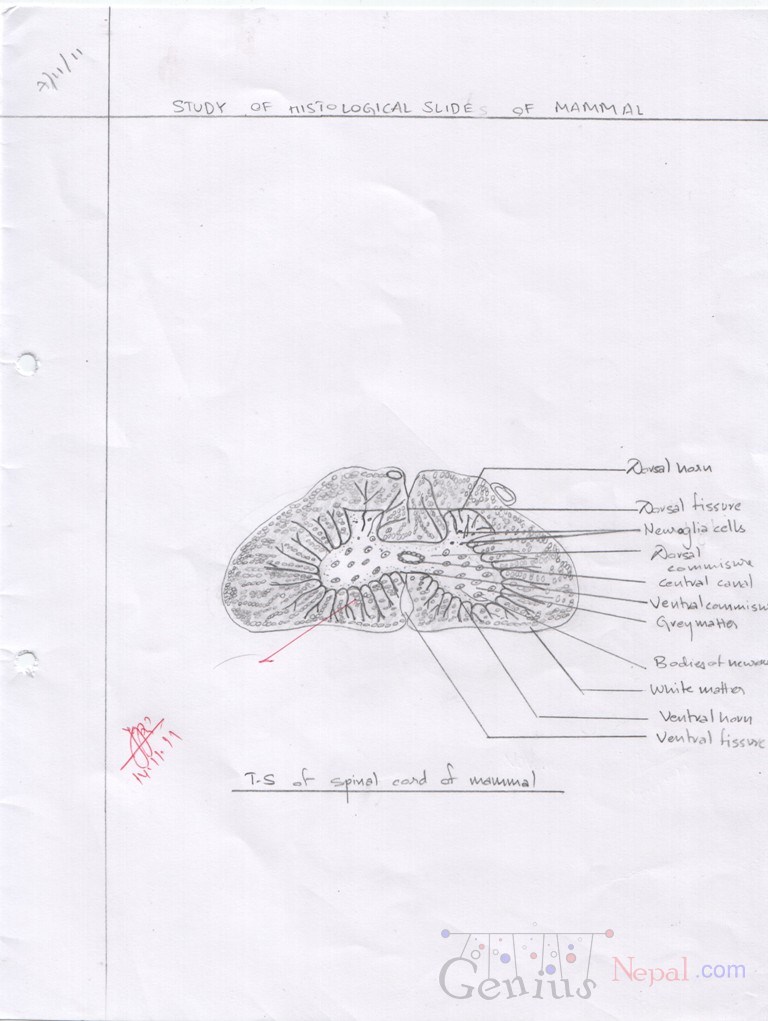 7/11/11
STUDY OF HISTOLOGICAL SLIDES OF MAMMAL
Dorsal horn
Dorsal fissure
Neuroglia cells
Dorsal
commisure
central canal
Ventral commisu
Grey matter
Bodies of neuron
White matter
Ventral horn
Ventral fissure
T.S of spinal cord of mammal
Genius Nepal.com